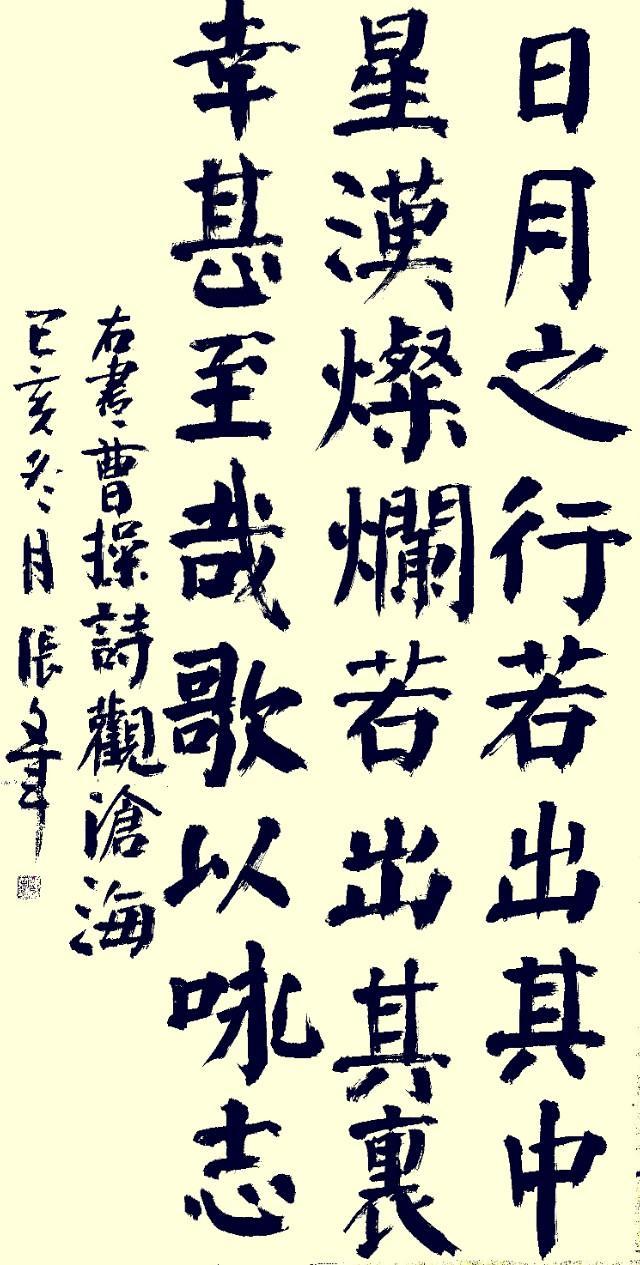 日月之行若出其中
星漢燦爛若出其裏
幸甚至哉歌以咏志
右書曹操詩觀滄海
己亥冬月張